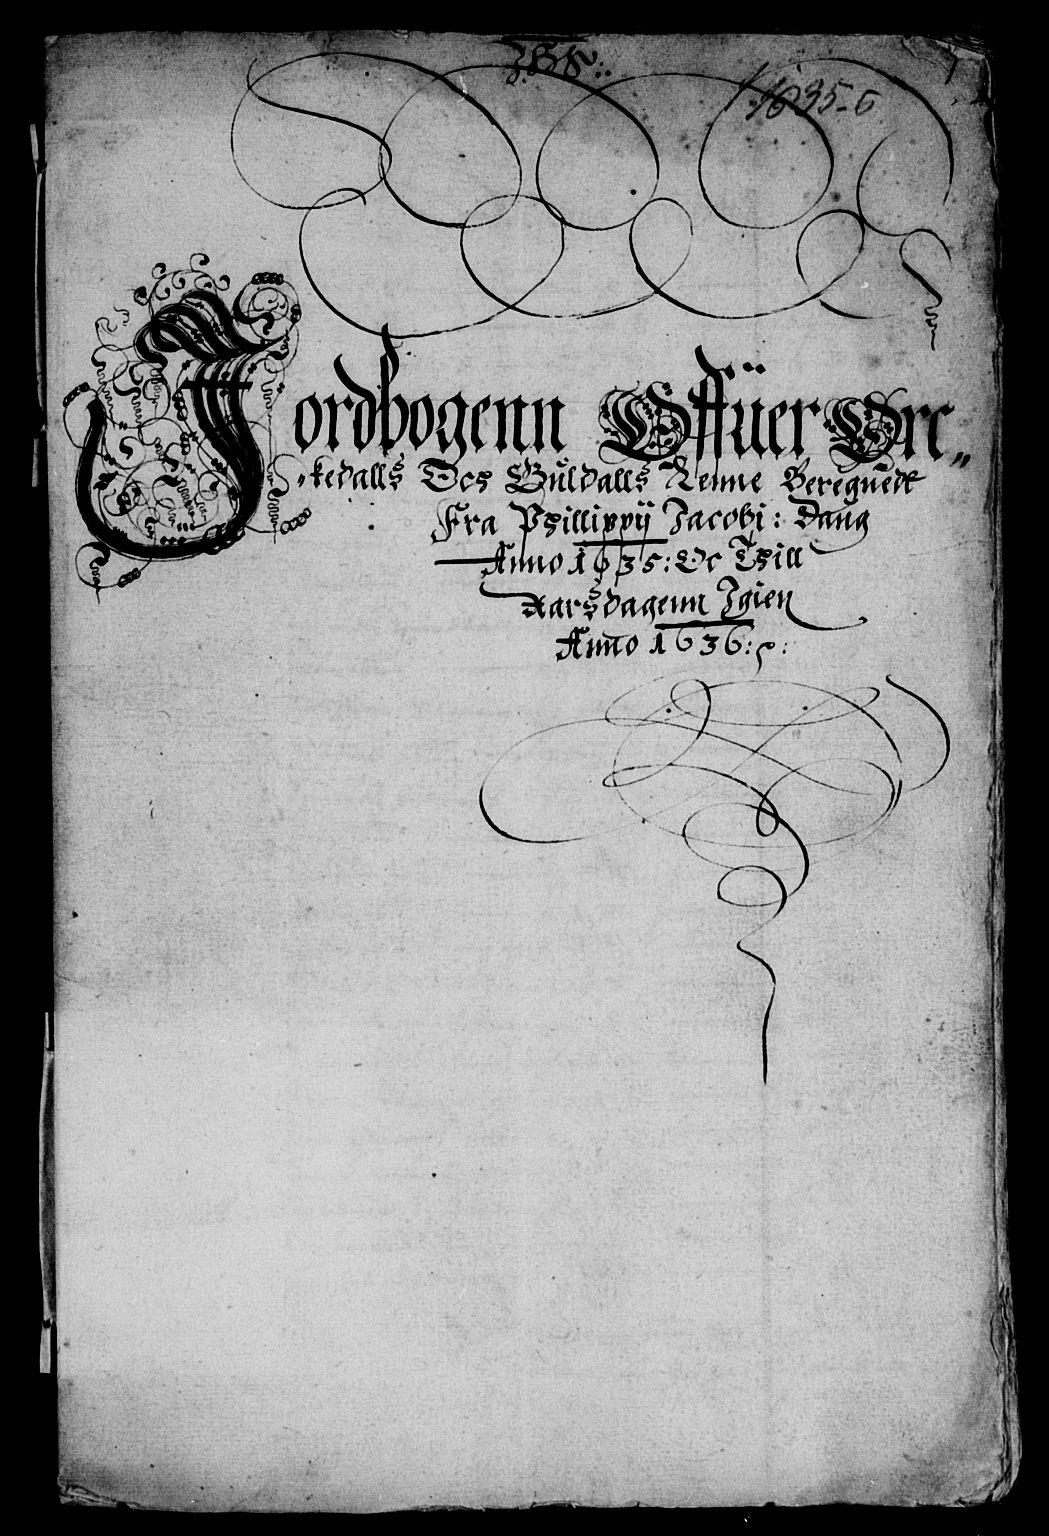 1635-6
Jordbogenn Offuer Orc„
„kedalls Ocs Guldalls Renne Bereguedt
Fra Phillippij Jacobj: Daug
Anno 1635: Oc Thill
Aarsdagenn Igien
Anno 1636: